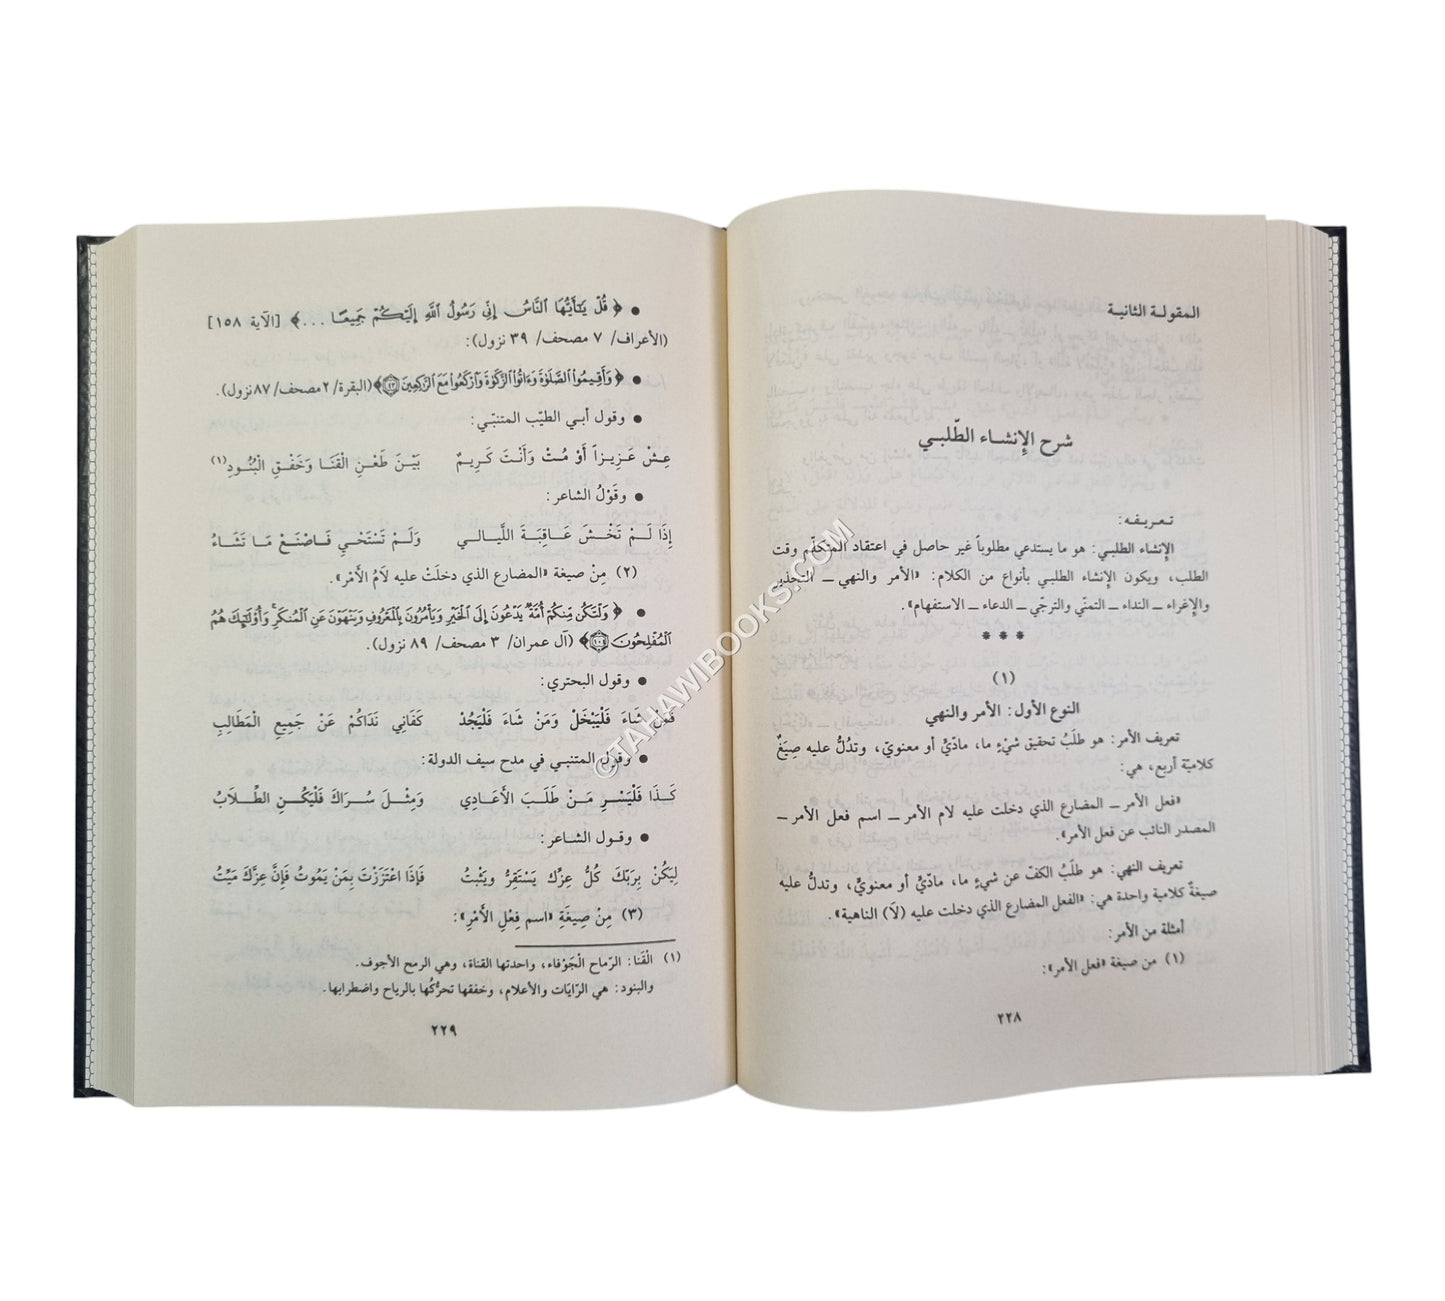 المقولة الثانية
شرح الإنشاء الطّلبي
تعريفه:
الإنشاء الطلبي: هو ما يستدعي مطلوباً غير حاصل في اعتقاد المتكلّم وقت
الطلب، ويكون الإنشاء الطلبي بأنواع من الكلام: «الأمر والنهي ــ التحذير
والإغراء ــ النداء ــ التمنّي والترجّي ــ الدعاء ــ الاستفهام».
* * *
(١)
النوع الأول: الأمر والنهي
تعريف الأمر: هو طلَبُ تحقيق شيْءٍ ما، مادّيٍّ أو معنويّ، وتدُلُّ عليه صِيَغٌ
كلاميّة أربع، هي:
«فعل الأمر ــ المضارع الذي دخلت عليه لام الأمر ــ اسم فعل الأمر ــ
المصدر النائب عن فعل الأمر».
تعريف النهي: هو طلَبُ الكفّ عن شيءٍ ما، مادّيٍّ أو معنويٍّ، وتدلُّ عليه
صيغةٌ كلامية واحدة هي: «الفعل المضارع الذي دخلت عليه (لَا) الناهية».
أمثلة من الأمر:
(١) من صيغة «فعل الأمر»:
٢٢٨
● ﴿ قُلْ يَٰٓأَيُّهَا ٱلنَّاسُ إِنِّى رَسُولُ ٱللَّهِ إِلَيْكُمْ جَمِيعًا ...﴾ [الآية ١٥٨]
(الأعراف/ ٧ مصحف/ ٣٩ نزول):
● ﴿وَأَقِيمُوا۟ ٱلصَّلَوٰةَ وَءَاتُوا۟ ٱلزَّكَوٰةَ وَٱرْكَعُوا۟ مَعَ ٱلرَّٰكِعِينَ ۝٤٣﴾ (البقرة/ ٢ مصحف/ ٨٧ نزول).
● وقول أبي الطيّب المتنبّي:
عِشْ عَزِيزاً أَوْ مُتْ وَأَنْتَ كَرِيمٌ بَيْنَ طَعْنِ الْقَنَا وَخَفْقِ الْبُنُودِ(١)
● وقَوْلُ الشاعر:
إِذَا لَمْ تَخْشَ عَاقِبَةَ اللَّيالي وَلَمْ تَسْتَحْي فَاصْنَعْ مَا تَشَاءُ
(٢) مِنْ صيغة «المضارع الذي دخلَتْ عليه لَامُ الأَمْر».
● ﴿ وَلْتَكُن مِّنكُمْ أُمَّةٌ يَدْعُونَ إِلَى ٱلْخَيْرِ وَيَأْمُرُونَ بِٱلْمَعْرُوفِ وَيَنْهَوْنَ عَنِ ٱلْمُنكَرِ وَأُو۟لَٰٓئِكَ هُمُ
ٱلْمُفْلِحُونَ ۝١٠٤﴾ (آل عمران/ ٣ مصحف/ ٨٩ نزول).
● وقول البحتري:
فَمَنْ شَاءَ فَلْيَبْخَلْ وَمَنْ شَاءَ فَلْيَجُدْ كَفَانِي نَدَاكُمْ عَنْ جَمِيعِ الْمَطَالِبِ
● وقول المتنبي في مدح سيف الدولة:
كَذَا فَلْيَسْرِ مَنْ طَلَبَ الأَعَادِي وَمِثْلَ سُرَاكَ فَلْيَكُنِ الطِّلَابُ
● وقول الشاعر:
لِيَكُنْ بِرَبِّكَ كُلُّ عِزِّك يَسْتَقِرُّ ويَثْبتُ فَإِذَا اعْتَزَزْتَ بِمَنْ يَمُوتُ فَإِنَّ عِزَّكَ مَيِّتُ
(٣) مِنْ صِيغَةِ «اسم فِعْلِ الأَمْرِ»:
(١) الْقَنا: الرّماح الْجَوْفاء، واحدتها القناة، وهي الرمح الأجوف.
والبنود: هي الرّايَات والأعلام، وخفقها تحرُّكُها بالرياح واضطرابها.
٢٢٩
© TAHAWIBOOKS.COM